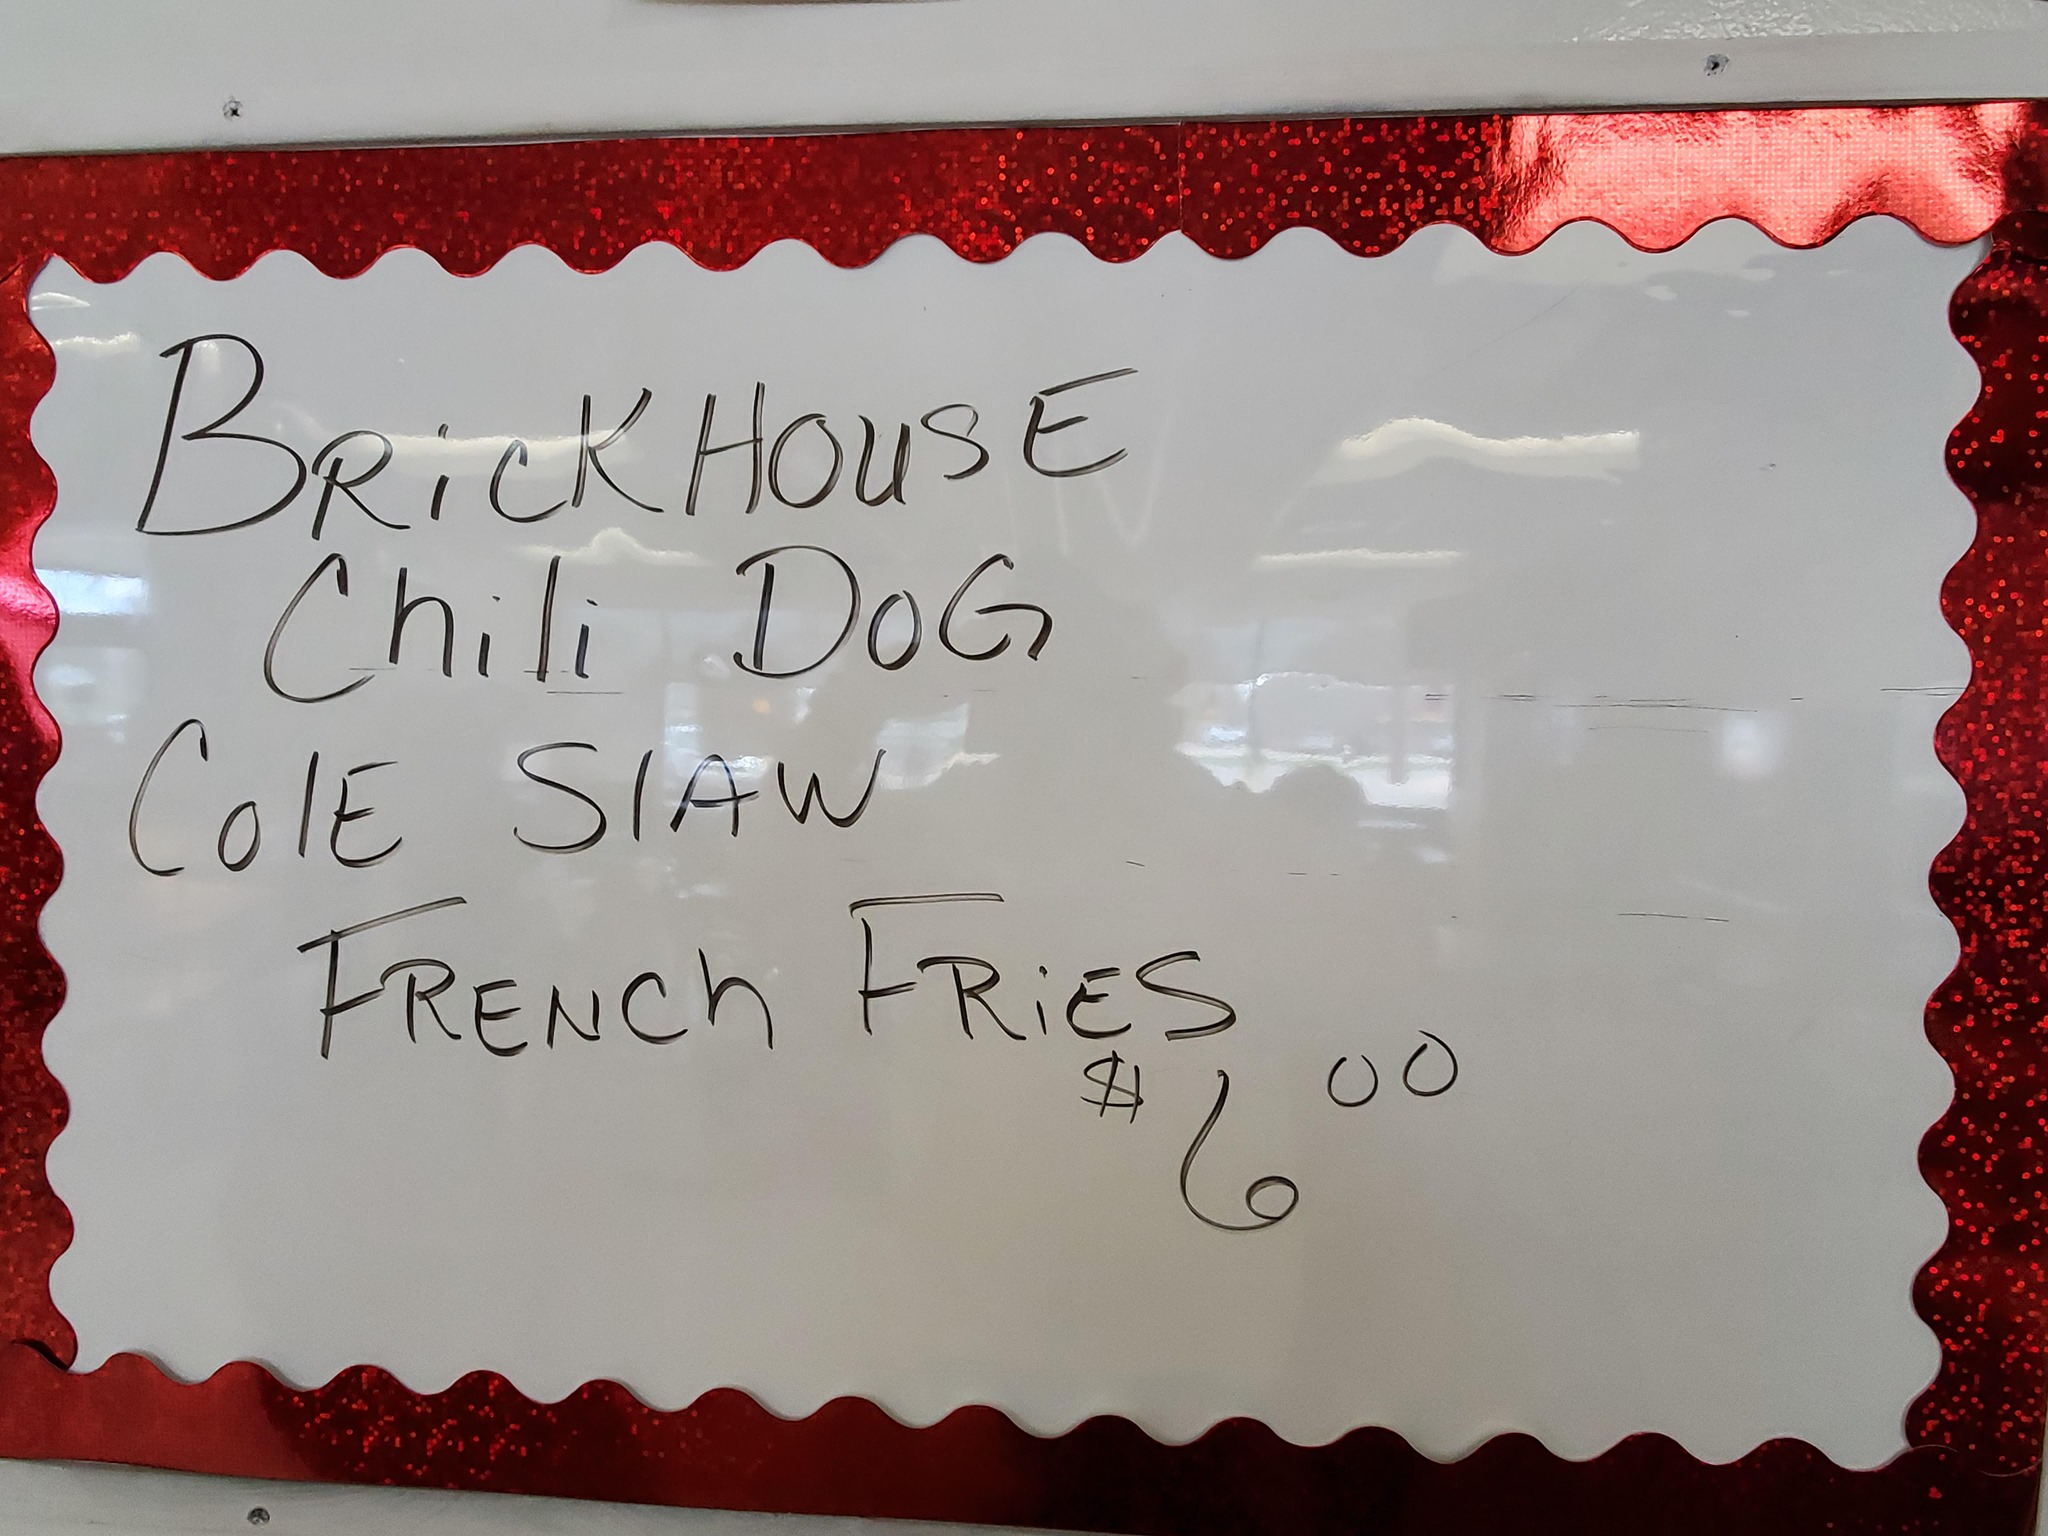 BRicKHOUSE
Chili DOG
ColE SlAW
FRENCh FRiES
$6.00